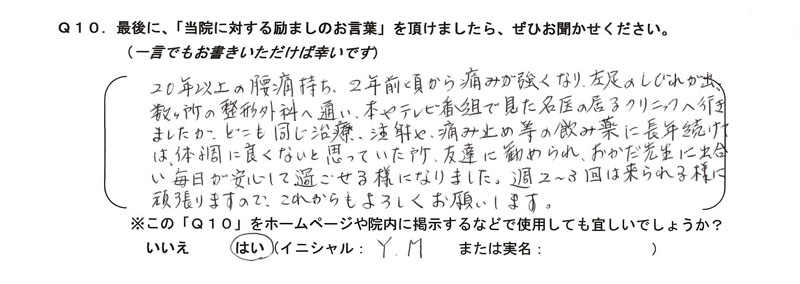 Ｑ１０．最後に、「当院に対する励ましのお言葉」を頂けましたら、ぜひお聞かせください。
（一言でもお書きいただけば幸いです）
20年以上の腰痛持ち、2年前頃から痛みが強くなり、左足のしびれが出、
数ヶ所の整形外科へ通い、本やテレビ番組で見た名医の居るクリニックへ行き
ましたが、どこも同じ治療、注射や、痛み止め等の飲み薬に長年続けて
は、体調に良くないと思っていた所、友達に勧められ、おかだ先生に出会
い毎日が安心して過ごせる様になりました。週2～3回は来られる様に
頑張りますので、これからもよろしくお願いします。
※この「Ｑ１０」をホームページや院内に掲示するなどで使用しても宜しいでしょうか？
いいえ　はい（イニシャル： Y.M　または実名：　）